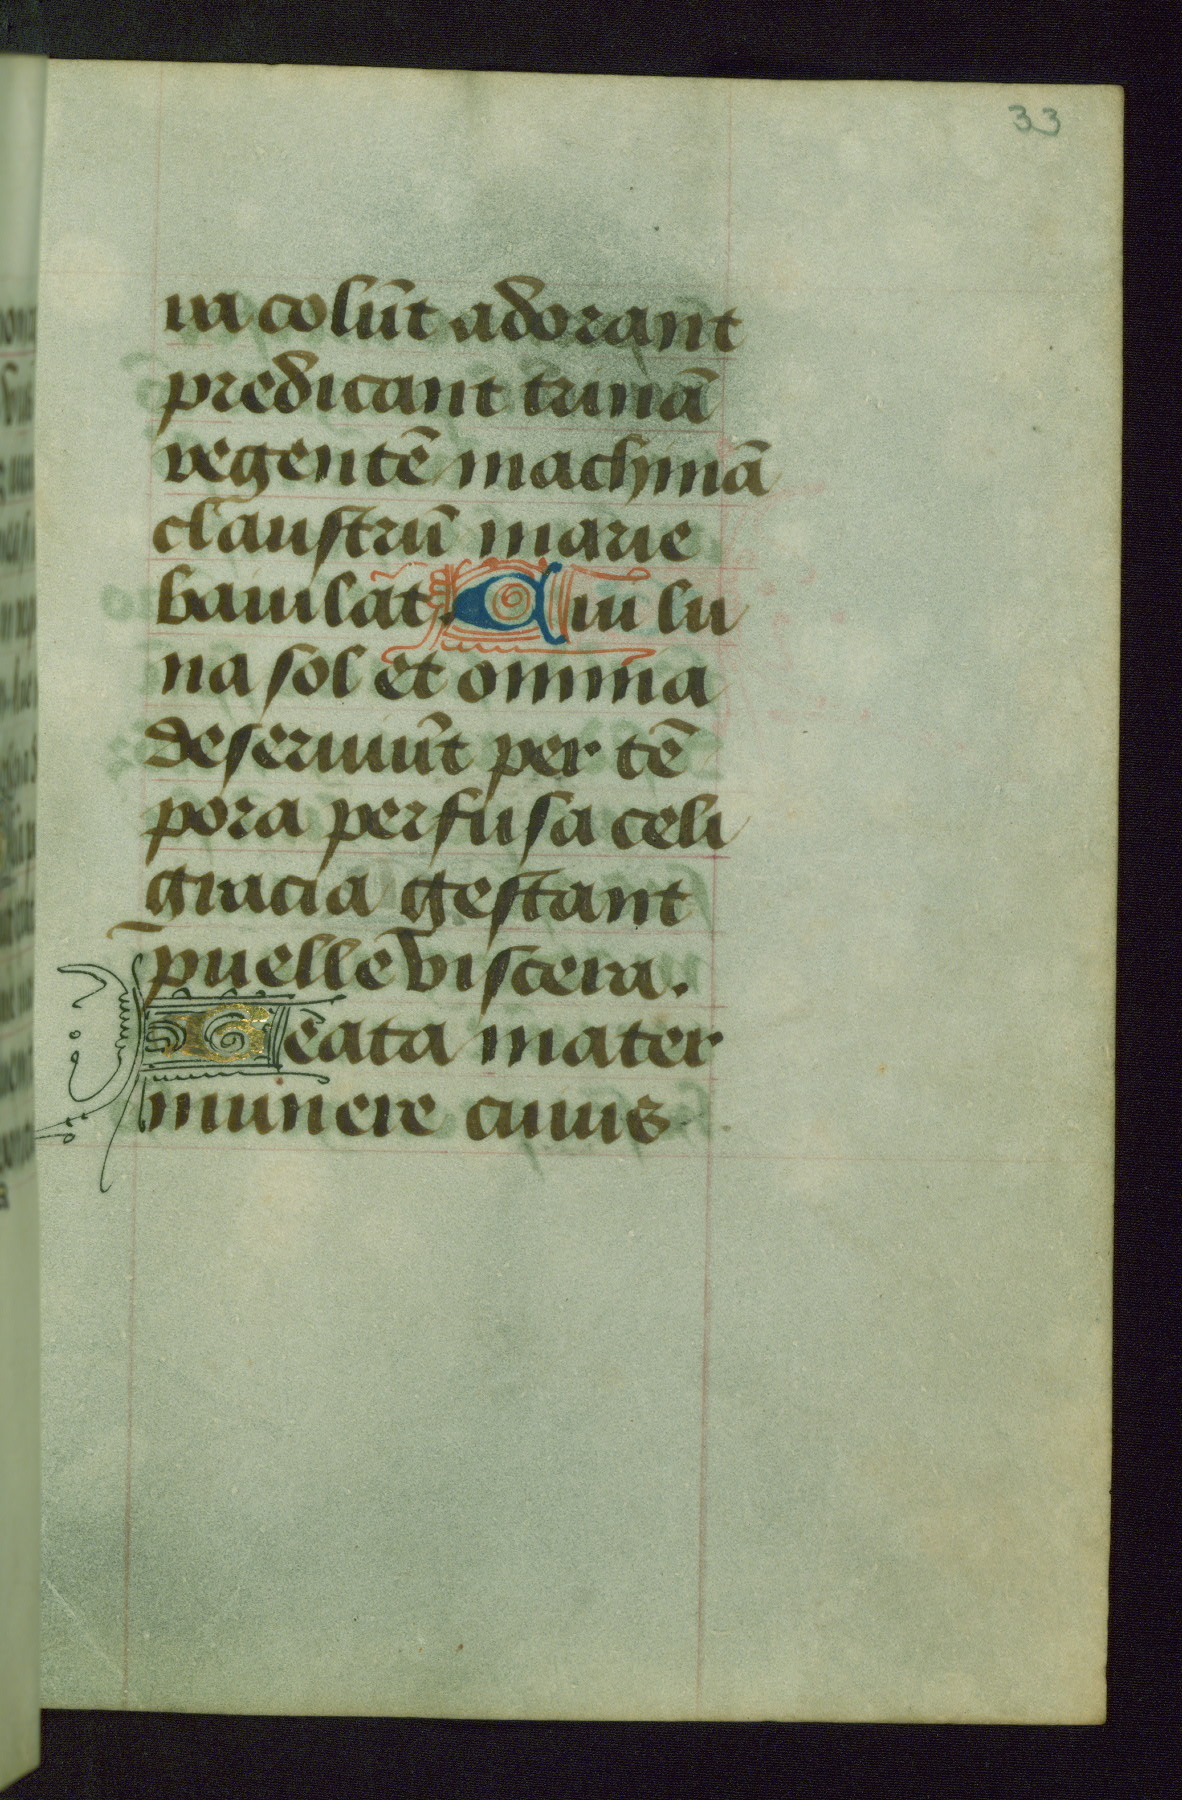 33
ra colūt adorant
predicant trinā
regentē machinā
claustrū marie
baiulāt. Cui lu
na sol et omnia
deseruiūt per tē
pora perfusa celi
gracia gestant
puelle viscera.
Beata mater
munere cuius